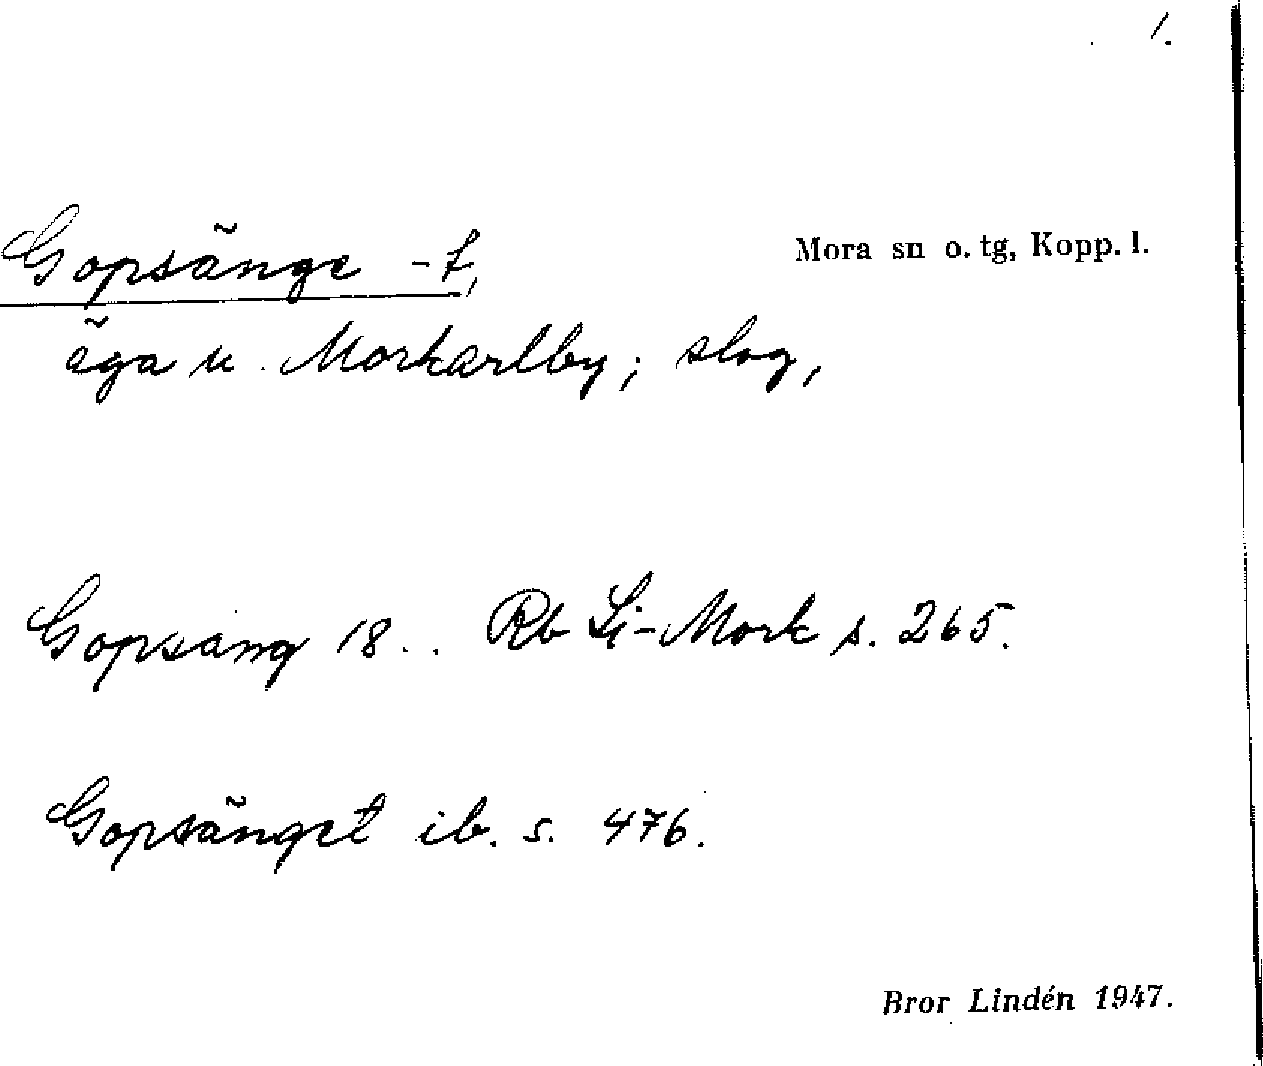 1.
Gopsänge -t,
Mora sn o. tg, Kopp. l.
äga u. Morkarlby; slog,
Gopsäng 18.. Rb Li-Mork s. 265.
Gopsänget ib. s. 476.
Bror Lindén 1947.